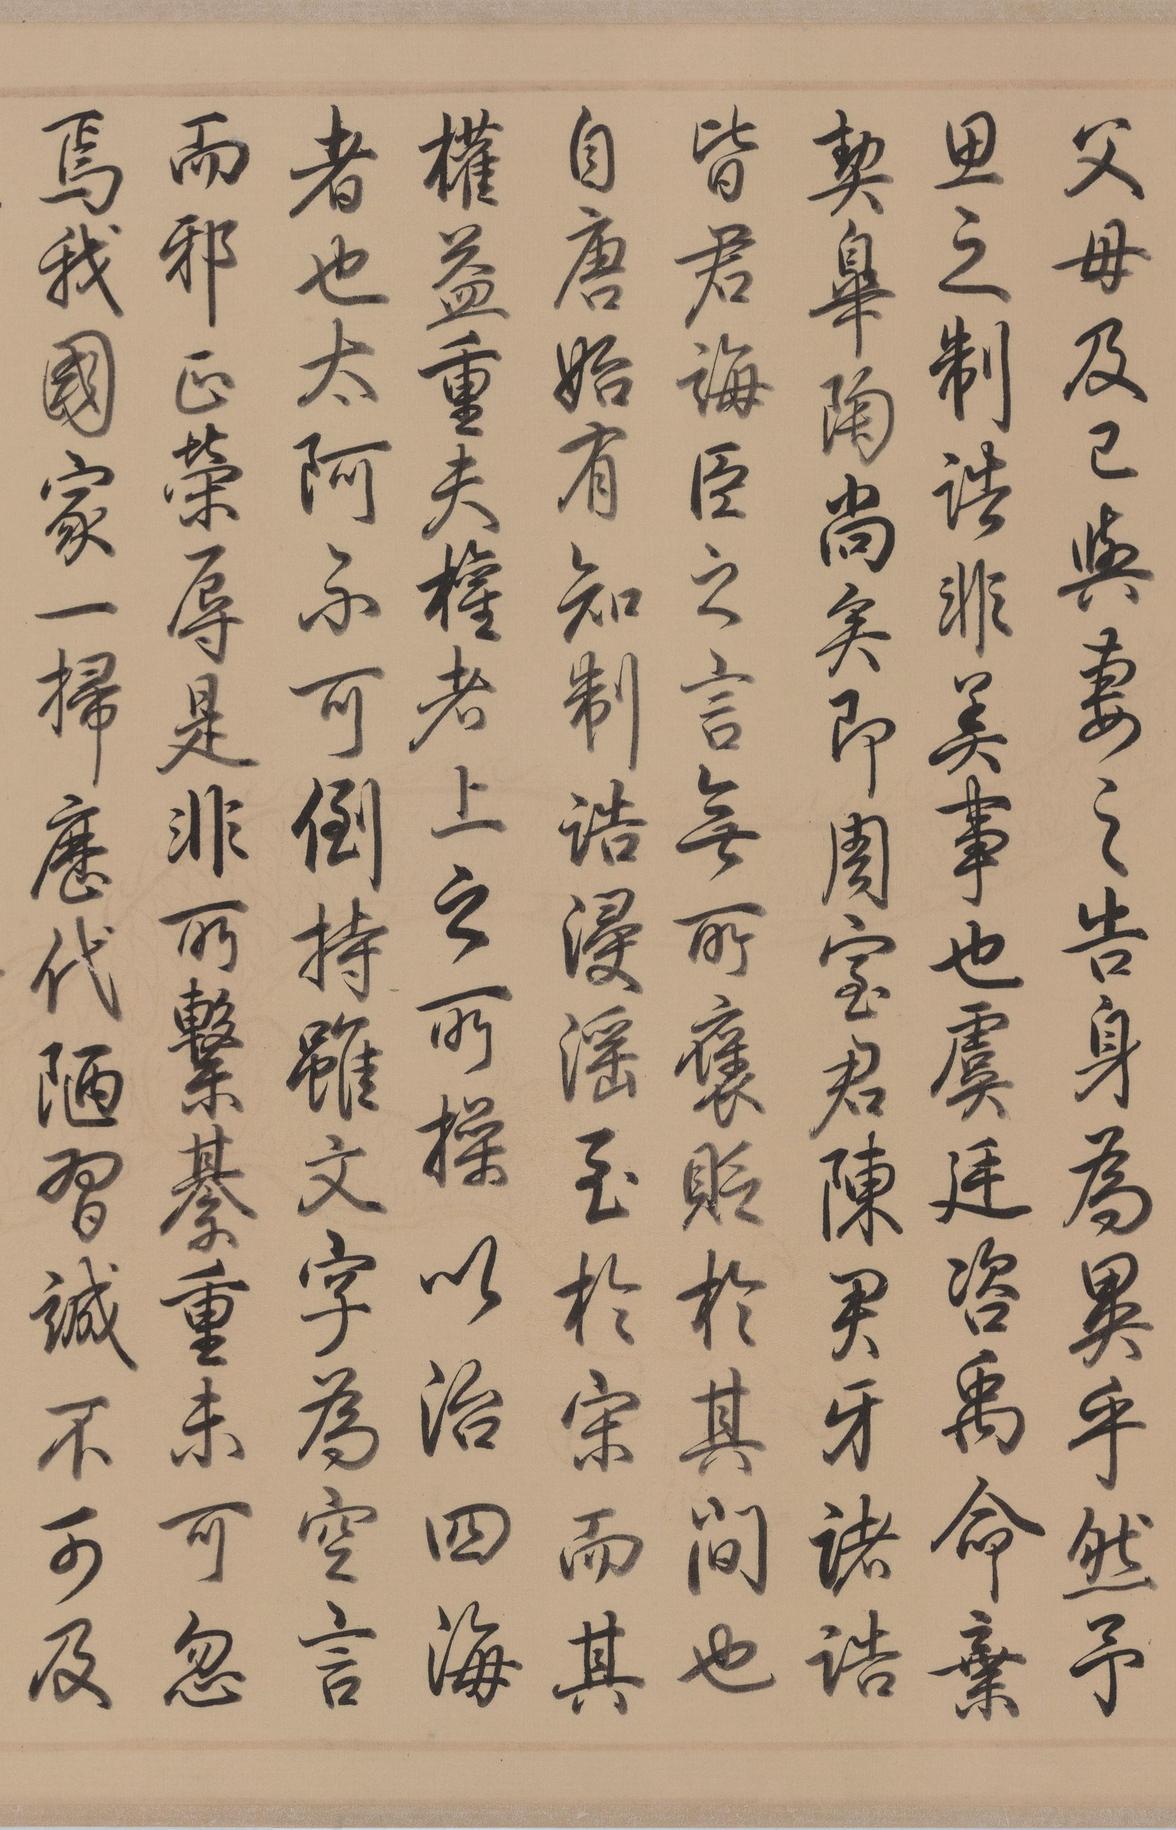 父母及己與妻之告身為異乎然予
思之制誥非美事也虞廷咨禹命棄
契皋陶尚矣即周室君陳君牙諸誥
皆君誨臣之言無所褒貶於其間也
自唐始有知制誥浸淫至於宋而其
權益重夫權者上之所操以治四海
者也太阿不可倒持雖文字為空言
而邪正榮辱是非所繫綦重未可忽
焉我國家一掃歷代陋習誠不可及